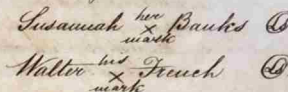 Susannah her x mark Banks LS
Walter his x mark French LS